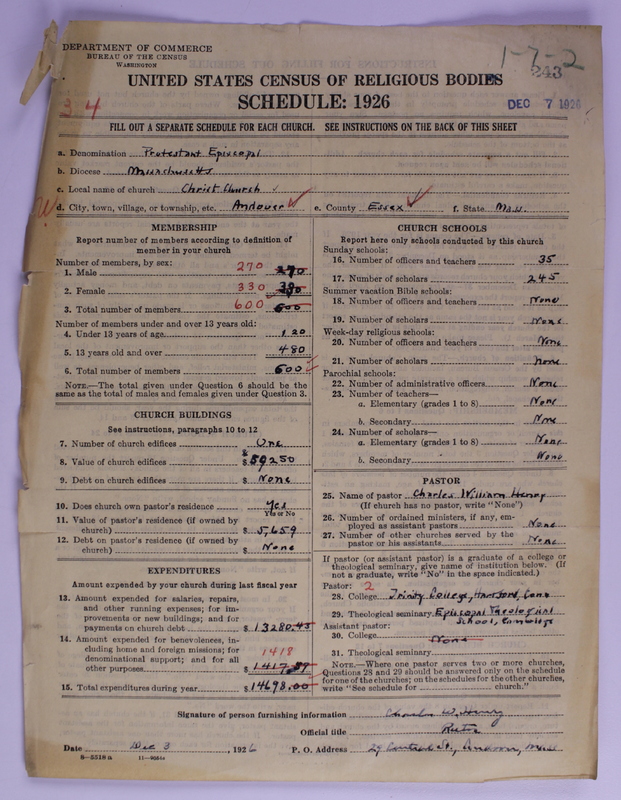 DEPARTMENT OF COMMERCE
BUREAU OF THE CENSUS
WASHINGTON
1-7-2
243
UNITED STATES CENSUS OF RELIGIOUS BODIES
SCHEDULE: 1926
DEC 7 1926
34
FILL OUT A SEPARATE SCHEDULE FOR EACH CHURCH. SEE INSTRUCTIONS ON THE BACK OF THIS SHEET
a. Denomination Protestant Episcopal
b. Diocese Massachusetts
c. Local name of church Christ Church
d. City, town, village, or township, etc. Andover e. County Essex f. State Mass.
MEMBERSHIP
Report number of members according to definition of
member in your church
Number of members, by sex:
1. Male 270 270
2. Female 330
3. Total number of members 600 600
Number of members under and over 13 years old:
4. Under 13 years of age 120
5. 13 years old and over 480
6. Total number of members 600
NOTE.—The total given under Question 6 should be
same as the total of males and females given under Question 3.
CHURCH BUILDINGS
See instructions, paragraphs 10 to 12
7. Number of church edifices One
8. Value of church edifices $59250
9. Debt on church edifices $ None
10. Does church own pastor's residence Yes
Yes or No
11. Value of pastor's residence (if owned by
church) $ 5,659
12. Debt on pastor's residence (if owned by
church) $ None
EXPENDITURES
Amount expended by your church during last fiscal year
13. Amount expended for salaries, repairs,
and other running expenses; for im-
provements or new buildings; and for
payments on church debt $ 13280.43
14. Amount expended for benevolences, in-
cluding home and foreign missions; for
denominational support; and for all 1418
other purposes $ 1417.57
15. Total expenditures during year $ 14698.00
CHURCH SCHOOLS
Report here only schools conducted by this church
Sunday schools:
16. Number of officers and teachers 35
17. Number of scholars 245
Summer vacation Bible schools:
18. Number of officers and teachers None
19. Number of scholars None
Week-day religious schools:
20. Number of officers and teachers None
21. Number of scholars None
Parochial schools:
22. Number of administrative officers None
23. Number of teachers—
a. Elementary (grades 1 to 8) None
b. Secondary None
24. Number of scholars—
a. Elementary (grades 1 to 8) None
b. Secondary None
PASTOR
25. Name of pastor Charles William Henry
(If church has no pastor, write "None")
26. Number of ordained ministers, if any, em-
ployed as assistant pastors None
27. Number of other churches served by the
pastor or his assistants None
If pastor (or assistant pastor) is a graduate of a college or
theological seminary, give name of institution below. (If
not a graduate, write "No" in the space indicated.)
Pastor: 2
28. College Trinity College, Hartford, Conn
29. Theological seminary Episcopal Theological
School, Cambridge
Assistant pastor:
30. College None
31. Theological seminary
NOTE.—Where one pastor serves two or more churches,
Questions 28 and 29 should be answered only on the schedule
for one of the churches; on the schedules for the other churches,
write "See schedule for church."
Signature of person furnishing information Charles W. Henry
Official title Rector
Date Dec 3, 1926 P. O. Address 29 Central St., Andover, Mass
8—5518a 11—9184a